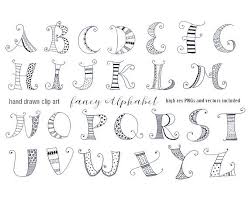 A B C D E F G
H I J K L M
hand drawn clip art fancy Alphabet high res PNGs and vectors included
N O P Q R S T
U V W X Y Z